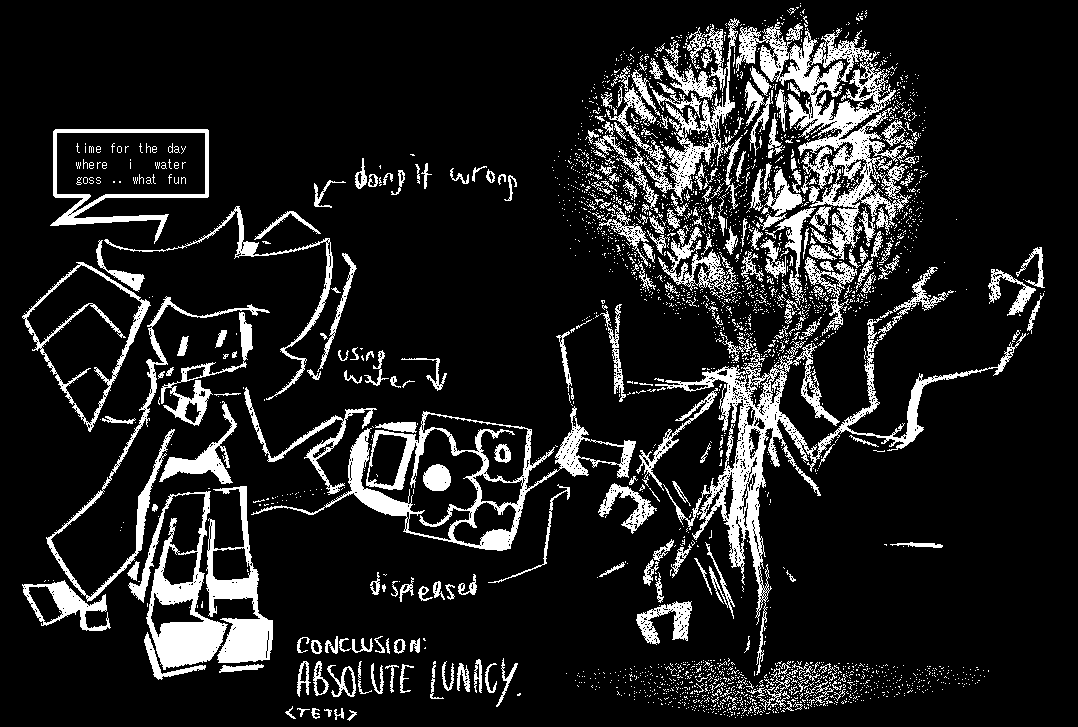 time for the day
where i water
goss .. what fun
doing it wrong
using
water
displeased
CONCLUSION:
ABSOLUTE LUNACY.
<TETH>